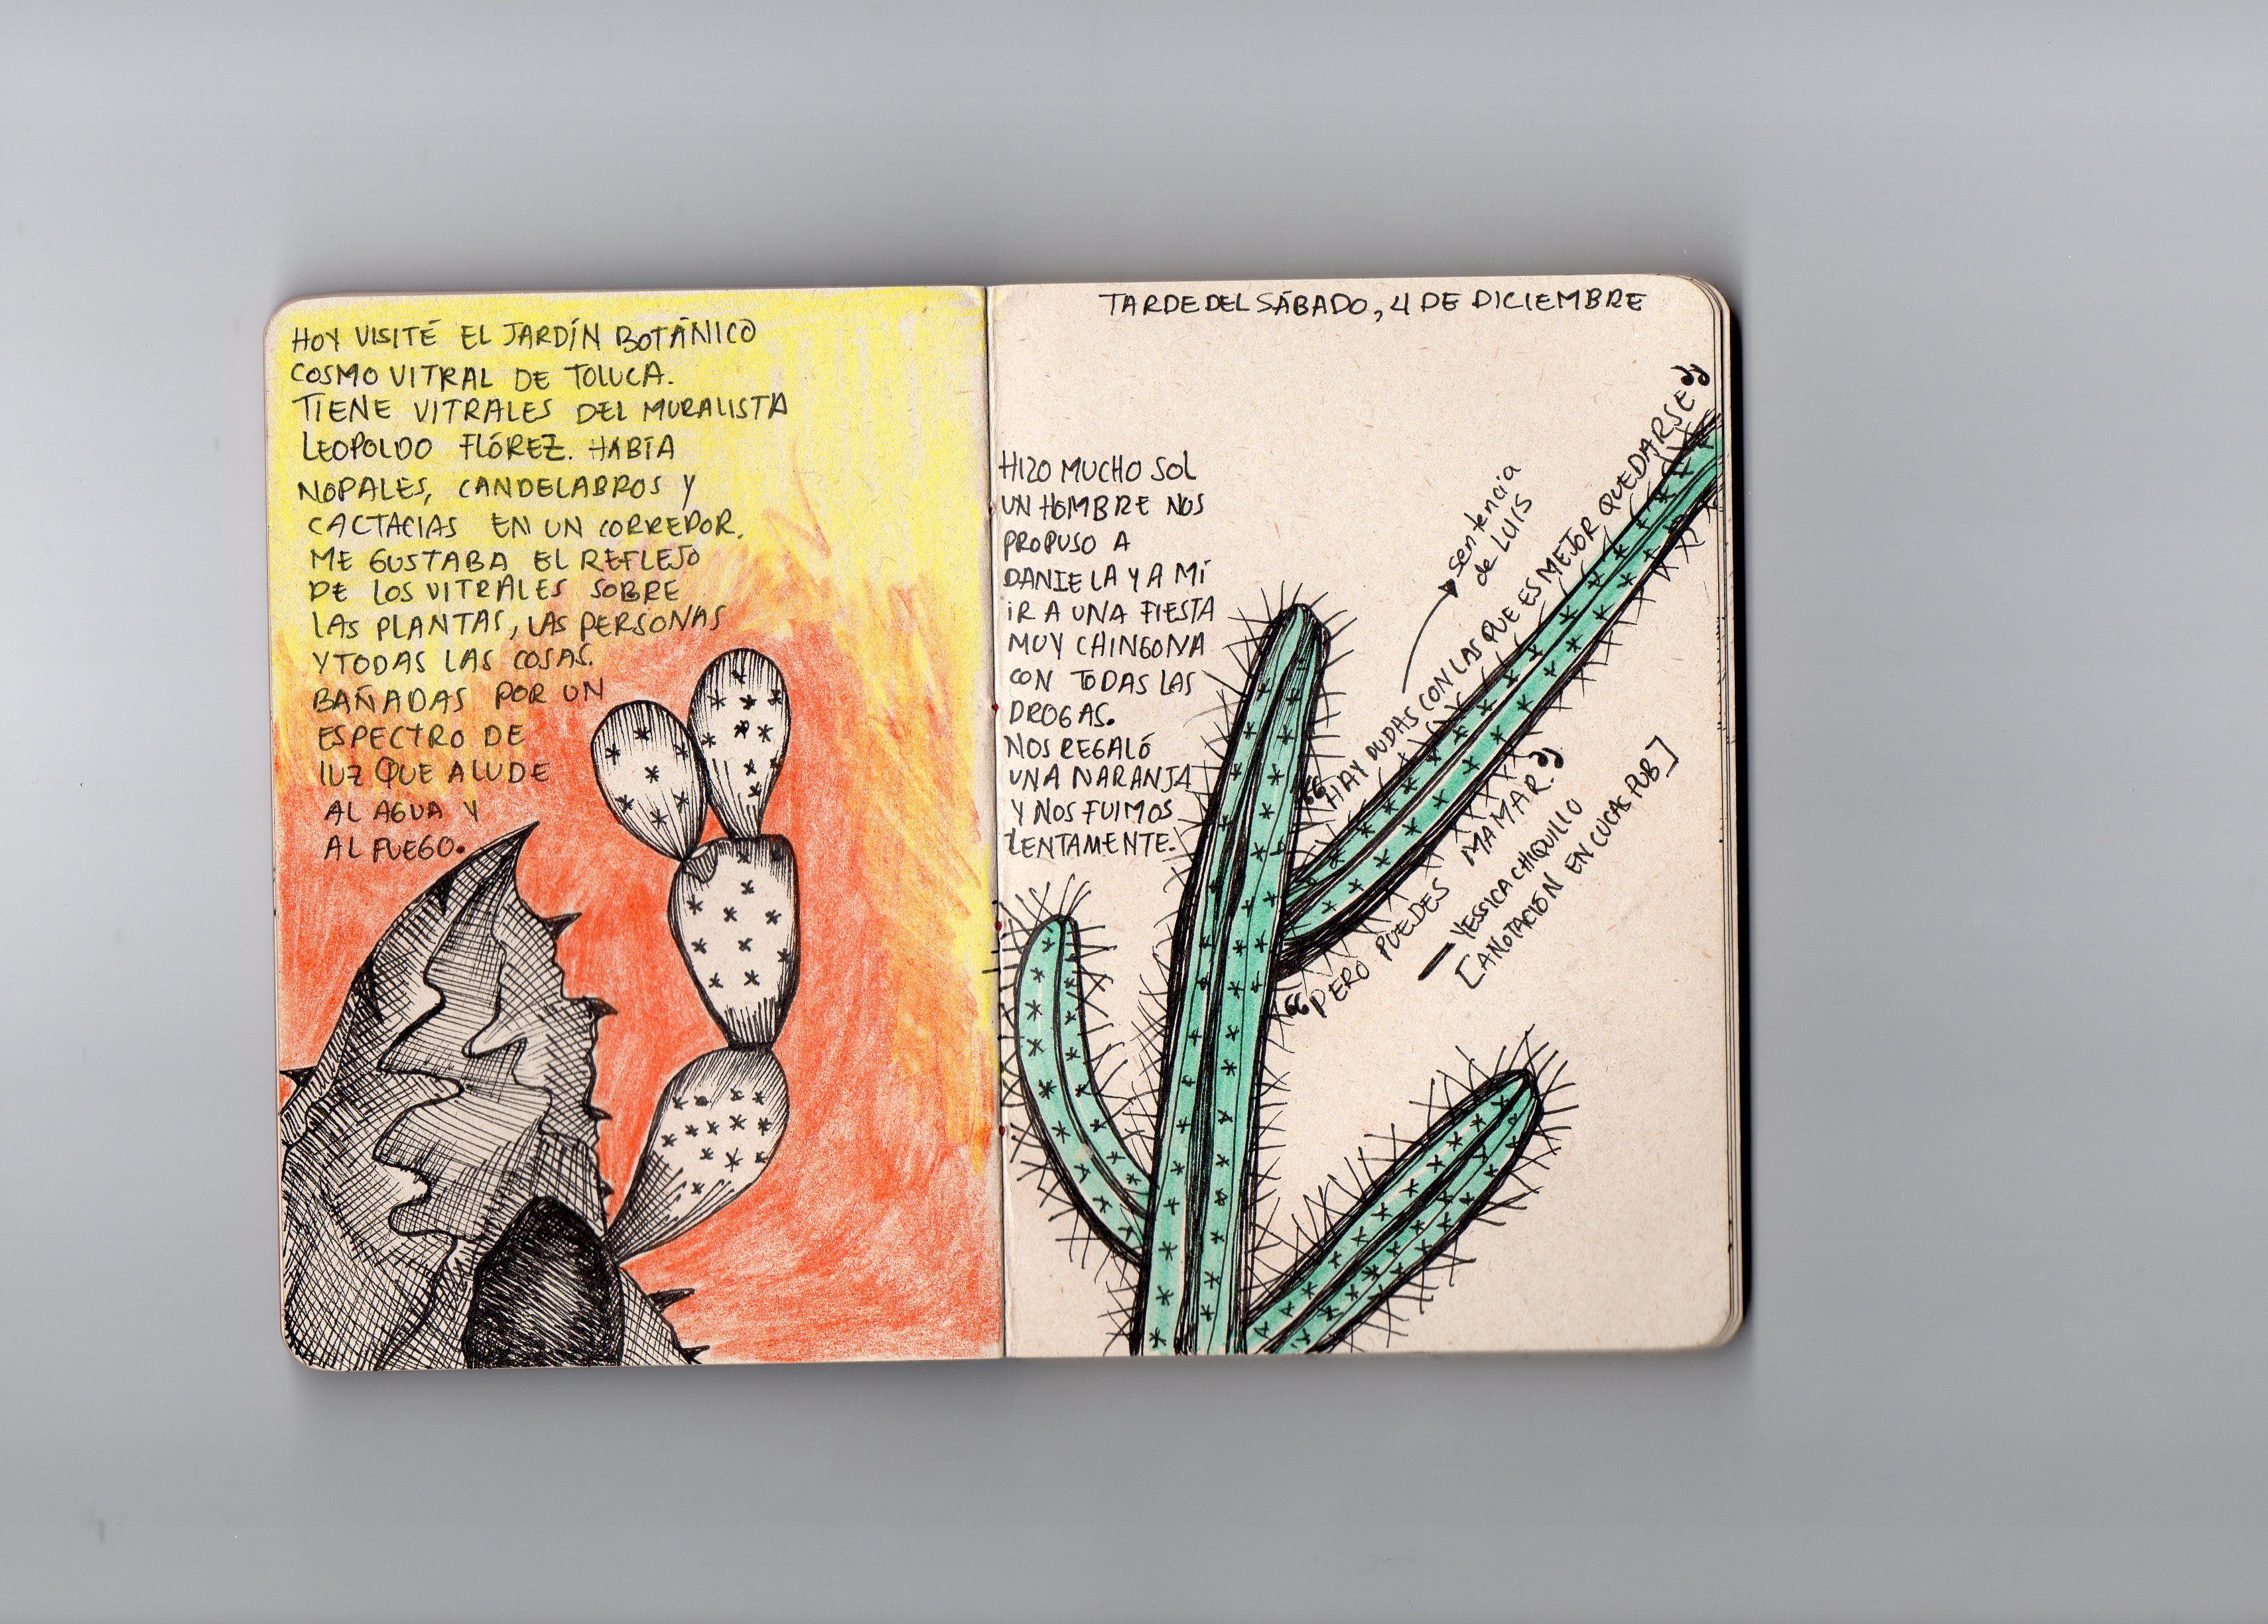 HOY VISITÉ EL JARDÍN BOTÁNICO
COSMO VITRAL DE TOLUCA.
TIENE VITRALES DEL MURALISTA
LEOPOLDO FLÓREZ. HABÍA
NOPALES, CANDELABROS Y
CACTACIAS EN UN CORREDOR.
ME GUSTABA EL REFLEJO
DE LOS VITRALES SOBRE
LAS PLANTAS, LAS PERSONAS
Y TODAS LAS COSAS.
BAÑADAS POR UN
ESPECTRO DE
LUZ QUE ALUDE
AL AGUA Y
AL FUEGO.
TARDE DEL SÁBADO, 4 DE DICIEMBRE
HIZO MUCHO SOL
UN HOMBRE NOS
PROPUSO A
DANIELA Y A MÍ
IR A UNA FIESTA
MUY CHINGONA
CON TODAS LAS
DROGAS.
NOS REGALÓ
UNA NARANJA
Y NOS FUIMOS
LENTAMENTE.
"HAY DUDAS CON LAS QUE ES MEJOR QUEDARSE"
sentencia
de LUIS
"PERO PUEDES MAMAR."
— YESSICA CHIQUILLO
[ANOTACIÓN EN LUCAS PUB]